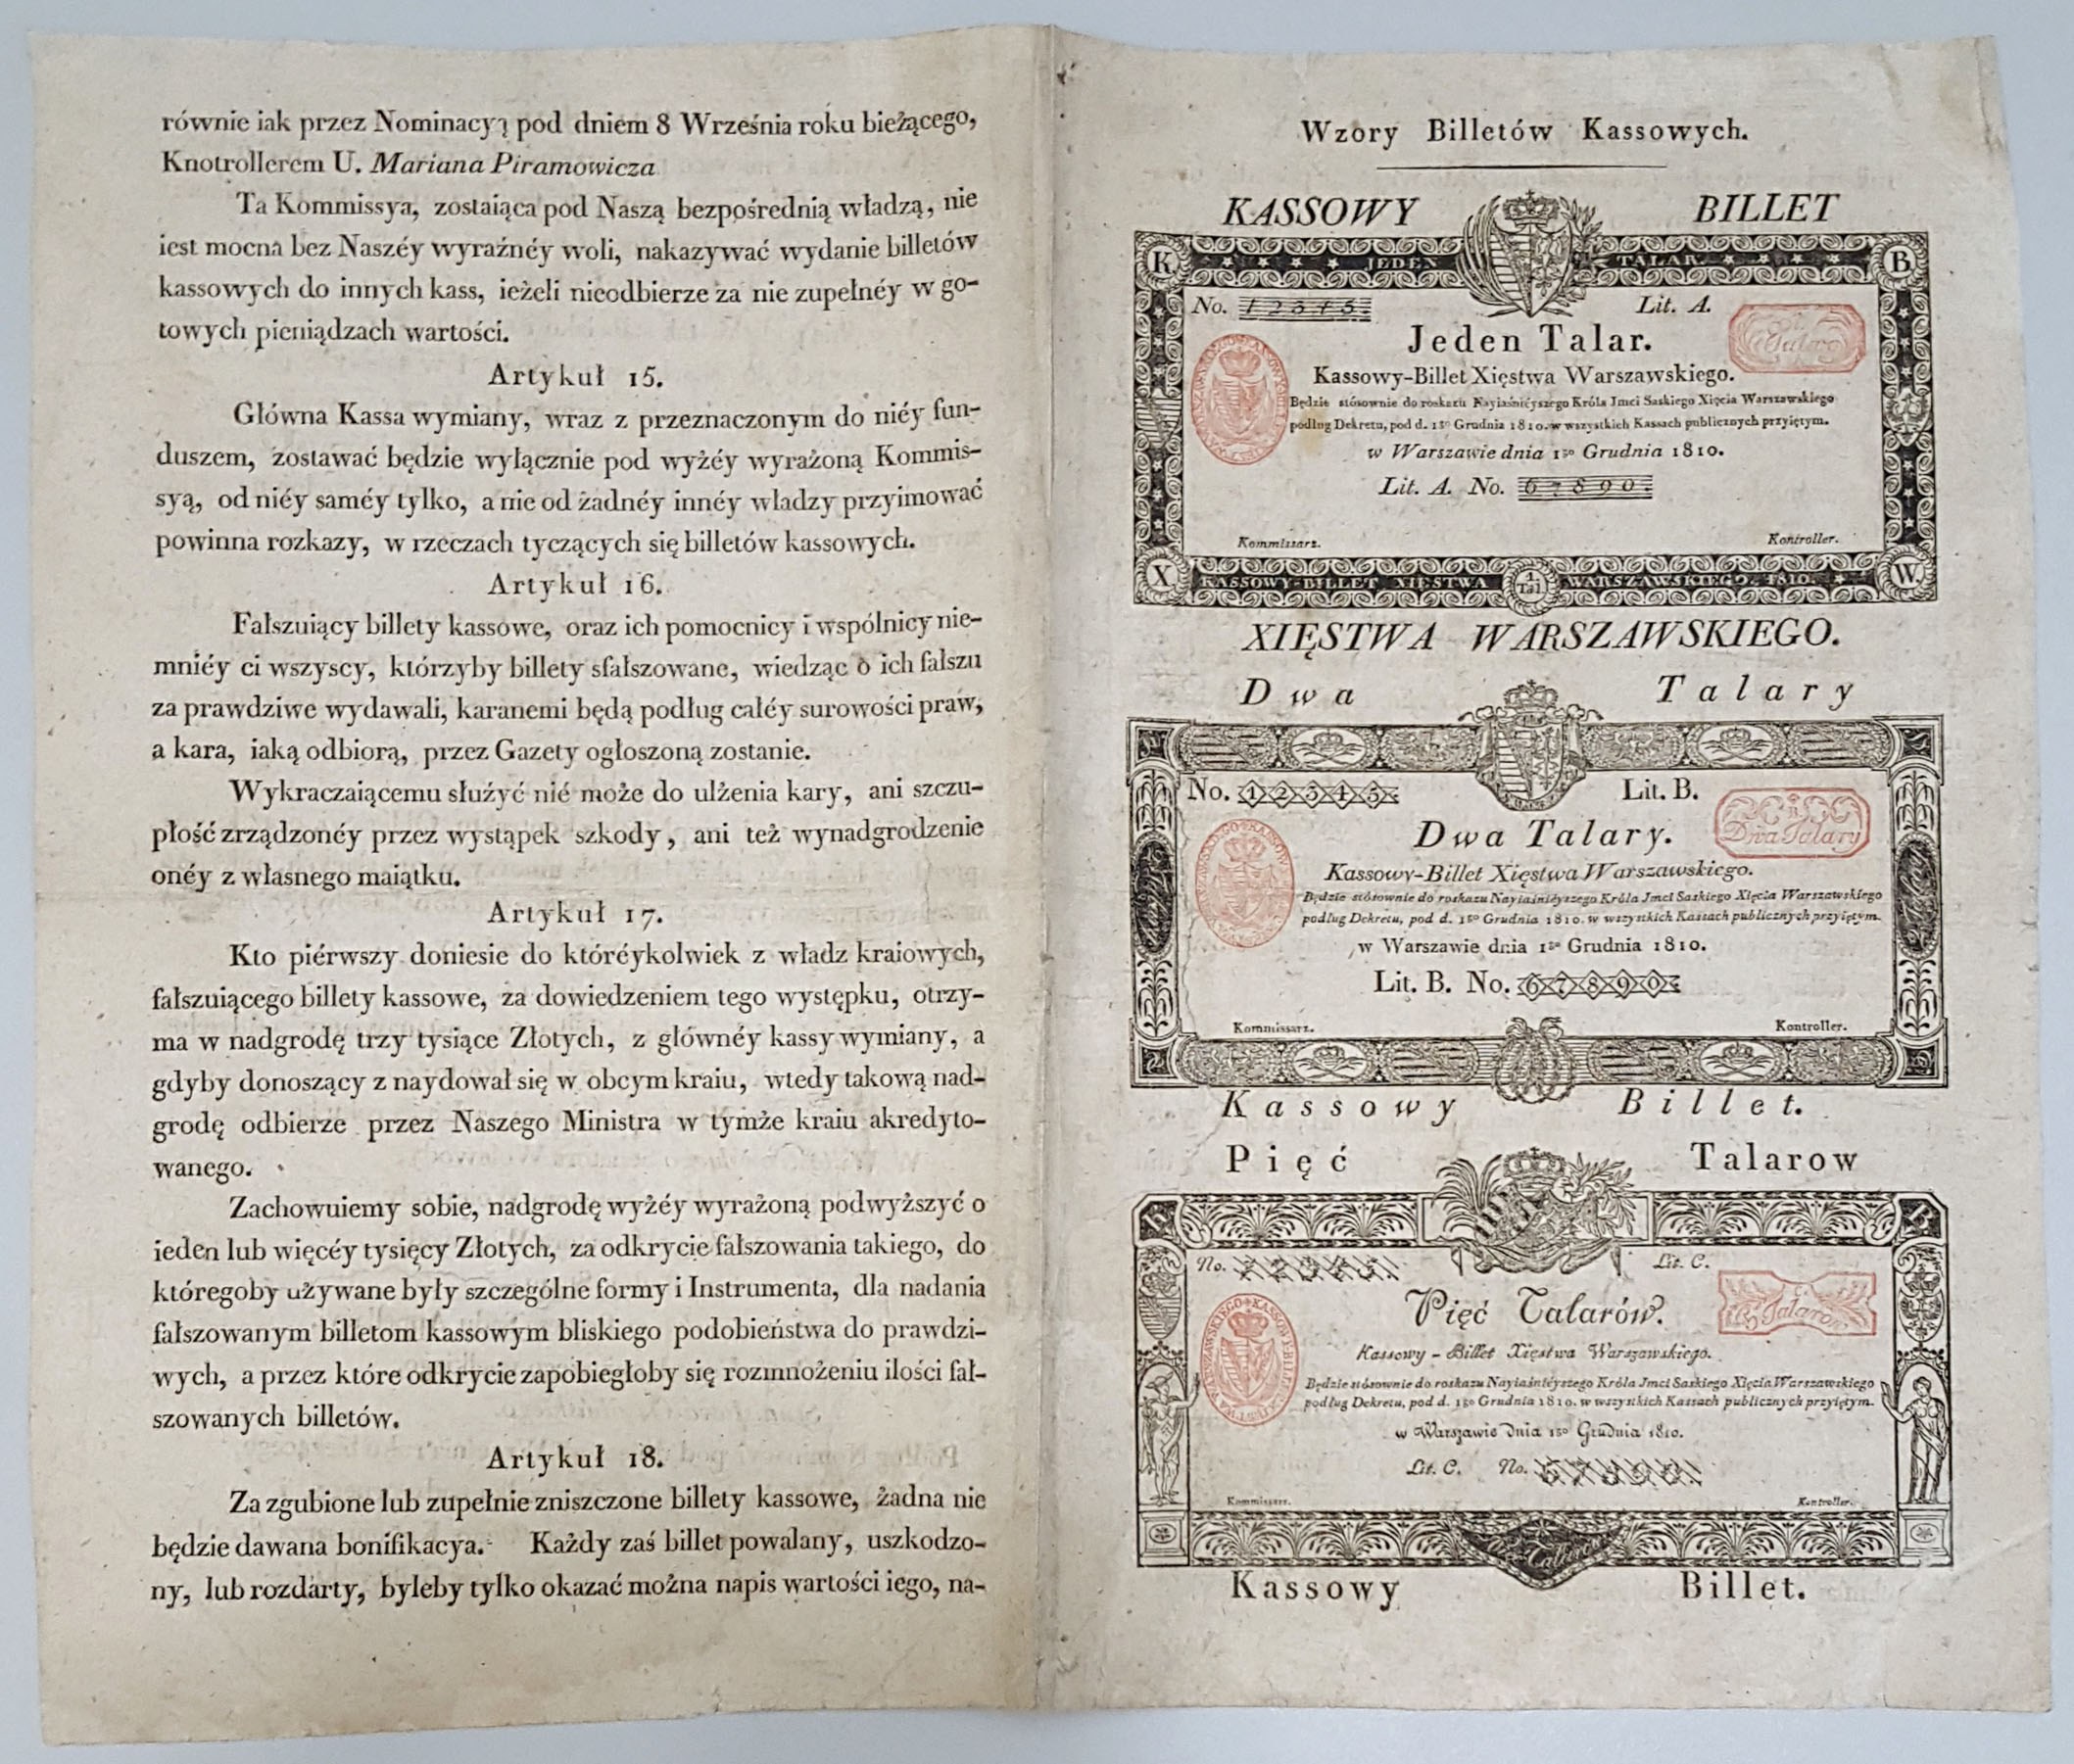 równie iak przez Nominacyą pod dniem 8 Września roku bieżącego,
Knotrollerem U. Mariana Piramowicza
Ta Kommissya, zostaiąca pod Naszą bezpośrednią władzą, nie
iest mocna bez Naszéy wyraźnéy woli, nakazywać wydanie billetów
kassowych do innych kass, ieżeli nieodbierze za nie zupełnéy w go-
towych pieniądzach wartości.
Artykuł 15.
Główna Kassa wymiany, wraz z przeznaczonym do niéy fun-
duszem, zostawać będzie wyłącznie pod wyżéy wyrażoną Kommis-
syą, od niéy saméy tylko, a nie od żadnéy innéy władzy przyimować
powinna rozkazy, w rzeczach tyczących się billetów kassowych.
Artykuł 16.
Fałszuiący billety kassowe, oraz ich pomocnicy i wspólnicy nie-
mniéy ci wszyscy, którzyby billety sfałszowane, wiedząc o ich fałszu
za prawdziwe wydawali, karanemi będą podług całéy surowości praw,
a kara, iaką odbiorą, przez Gazety ogłoszoną zostanie.
Wykraczaiącemu służyć nié może do ulżenia kary, ani szczu-
płość zrządzonéy przez występek szkody, ani też wynadgrodzenie
onéy z własnego maiątku.
Artykuł 17.
Kto piérwszy doniesie do któréykolwiek z władz kraiowych,
fałszuiącego billety kassowe, za dowiedzeniem tego występku, otrzy-
ma w nadgrodę trzy tysiące Złotych, z głównéy kassy wymiany, a
gdyby donoszący z naydował się w obcym kraiu, wtedy takową nad-
grodę odbierze przez Naszego Ministra w tymże kraiu akredyto-
wanego.
Zachowuiemy sobie, nadgrodę wyżéy wyrażoną podwyższyć o
ieden lub więcéy tysięcy Złotych, za odkrycie fałszowania takiego, do
któregoby używane były szczególne formy i Instrumenta, dla nadania
fałszowanym billetom kassowym bliskiego podobieństwa do prawdzi-
wych, a przez które odkrycie zapobiegłoby się rozmnożeniu ilości fał-
szowanych billetów.
Artykuł 18.
Za zgubione lub zupełnie zniszczone billety kassowe, żadna nie
będzie dawana bonifikacya. Każdy zaś billet powalany, uszkodzo-
ny, lub rozdarty, byleby tylko okazać można napis wartości iego, na-
Wzory Billetów Kassowych.
KASSOWY BILLET
K. JEDEN TALAR. B.
No. 12345 Lit. A.
Jeden Talar.
Kassowy-Billet Xięstwa Warszawskiego.
Będzie stósownie do roskazu Nayiaśniéyszego Króla Jmci Saskiego Xięcia Warszawskiego
podług Dekretu, pod d. 1go Grudnia 1810. w wszystkich Kassach publicznych przyiętym.
w Warszawie dnia 1go Grudnia 1810.
Lit. A. No. 67890.
Kommissarz. Kontroller.
X. KASSOWY-BILLET XIĘSTWA 1. Tal. WARSZAWSKIEGO. 1810. W.
XIĘSTWA WARSZAWSKIEGO.
Dwa Talary
No. 12345 Lit. B.
B Dwa Talary
Dwa Talary.
Kassowy-Billet Xięstwa Warszawskiego.
Będzie stósownie do roskazu Nayiaśniéyszego Króla Jmci Saskiego Xięcia Warszawskiego
podług Dekretu, pod d. 1go Grudnia 1810. w wszystkich Kassach publicznych przyiętym.
w Warszawie dnia 1go Grudnia 1810.
Lit. B. No. 67890
Kommissarz. Kontroller.
Kassowy Billet.
Pięć Talarow
No. 12345. Lit. C.
C. 5 Talarow
Pięć Talarów.
Kassowy-Billet Xięstwa Warszawskiego.
Będzie stósownie do roskazu Nayiaśniéyszego Króla Jmci Saskiego Xięcia Warszawskiego
podług Dekretu, pod d. 1go Grudnia 1810. w wszystkich Kassach publicznych przyiętym.
w Warszawie dnia 1go Grudnia 1810.
Lit. C. No. 67890
Kommissarz. Kontroller.
Kassowy Billet.